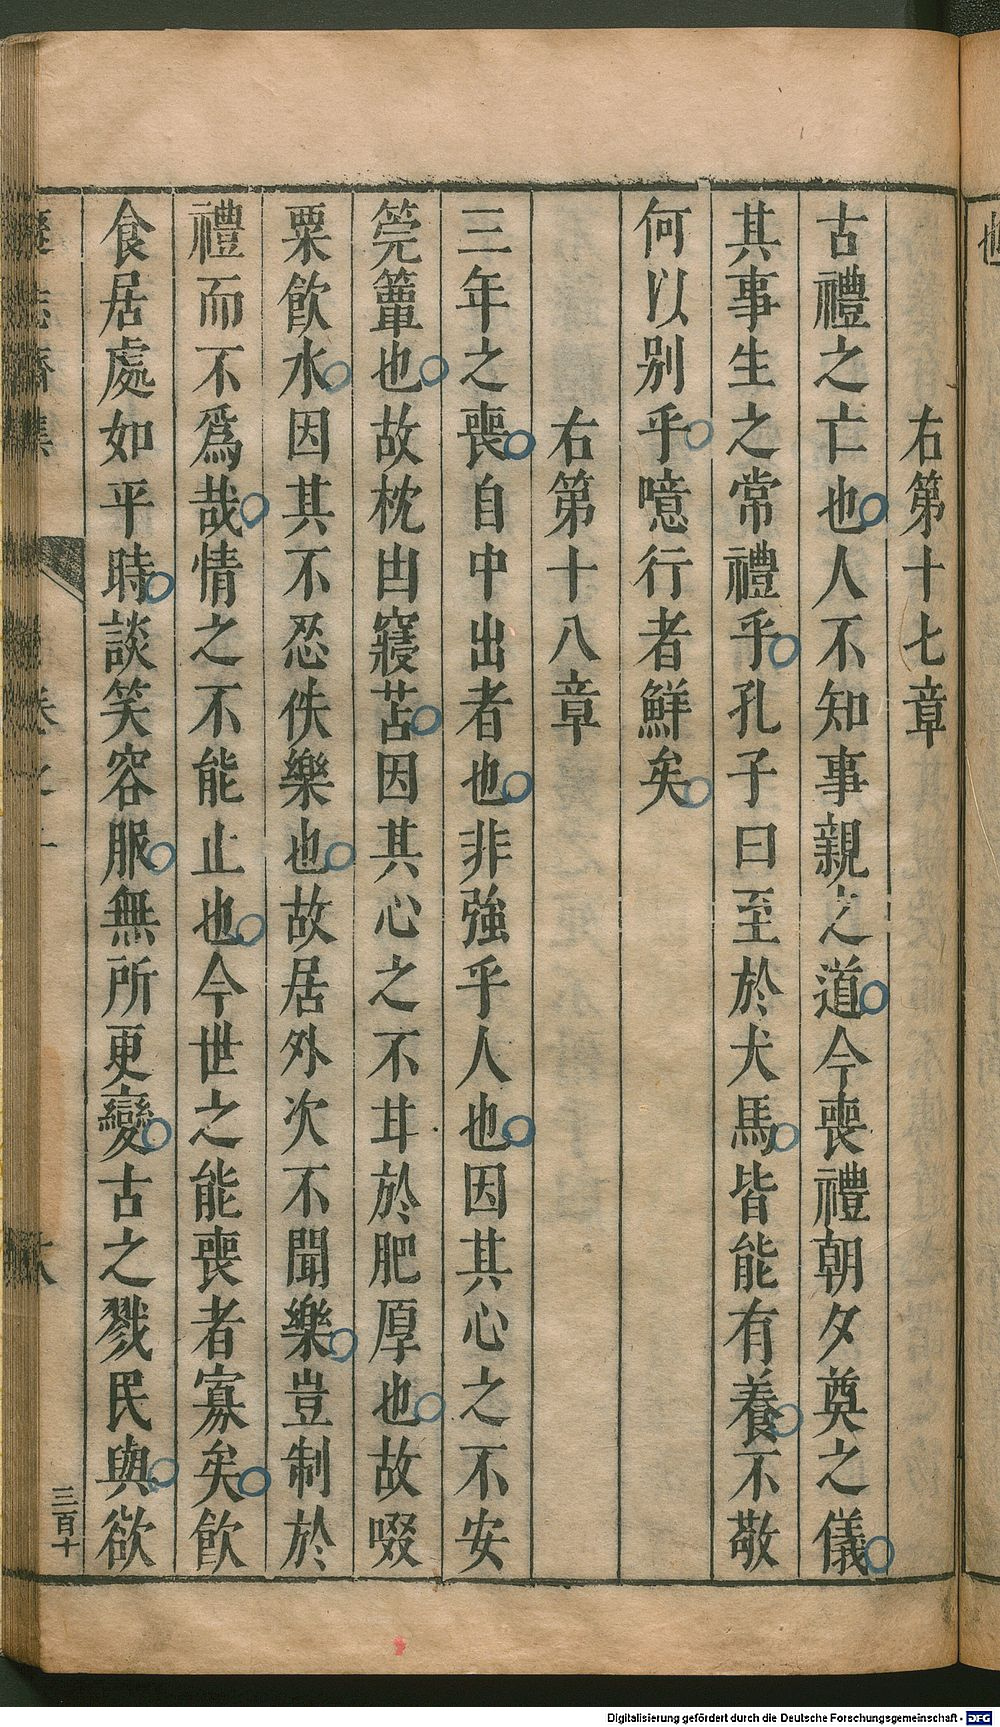 右第十七章
古禮之亡也人不知事親之道今喪禮朝夕奠之儀
其事生之常禮乎孔子曰至於犬馬皆能有養不敬
何以别乎噫行者鮮矣
右第十八章
三年之喪自中出者也非強乎人也因其心之不安
筦簟也故枕凷寢苫因其心之不甘於肥厚也故啜
粟飮水因其不忍佚樂也故居外次不聞樂豈制於
禮而不爲哉情之不能止也今世之能喪者寡矣飮
食居處如平時談笑容服無所更變古之戮民與欲
遜志齋集
卷之一
三百十
Digitalisierung gefördert durch die Deutsche Forschungsgemeinschaft - DFG